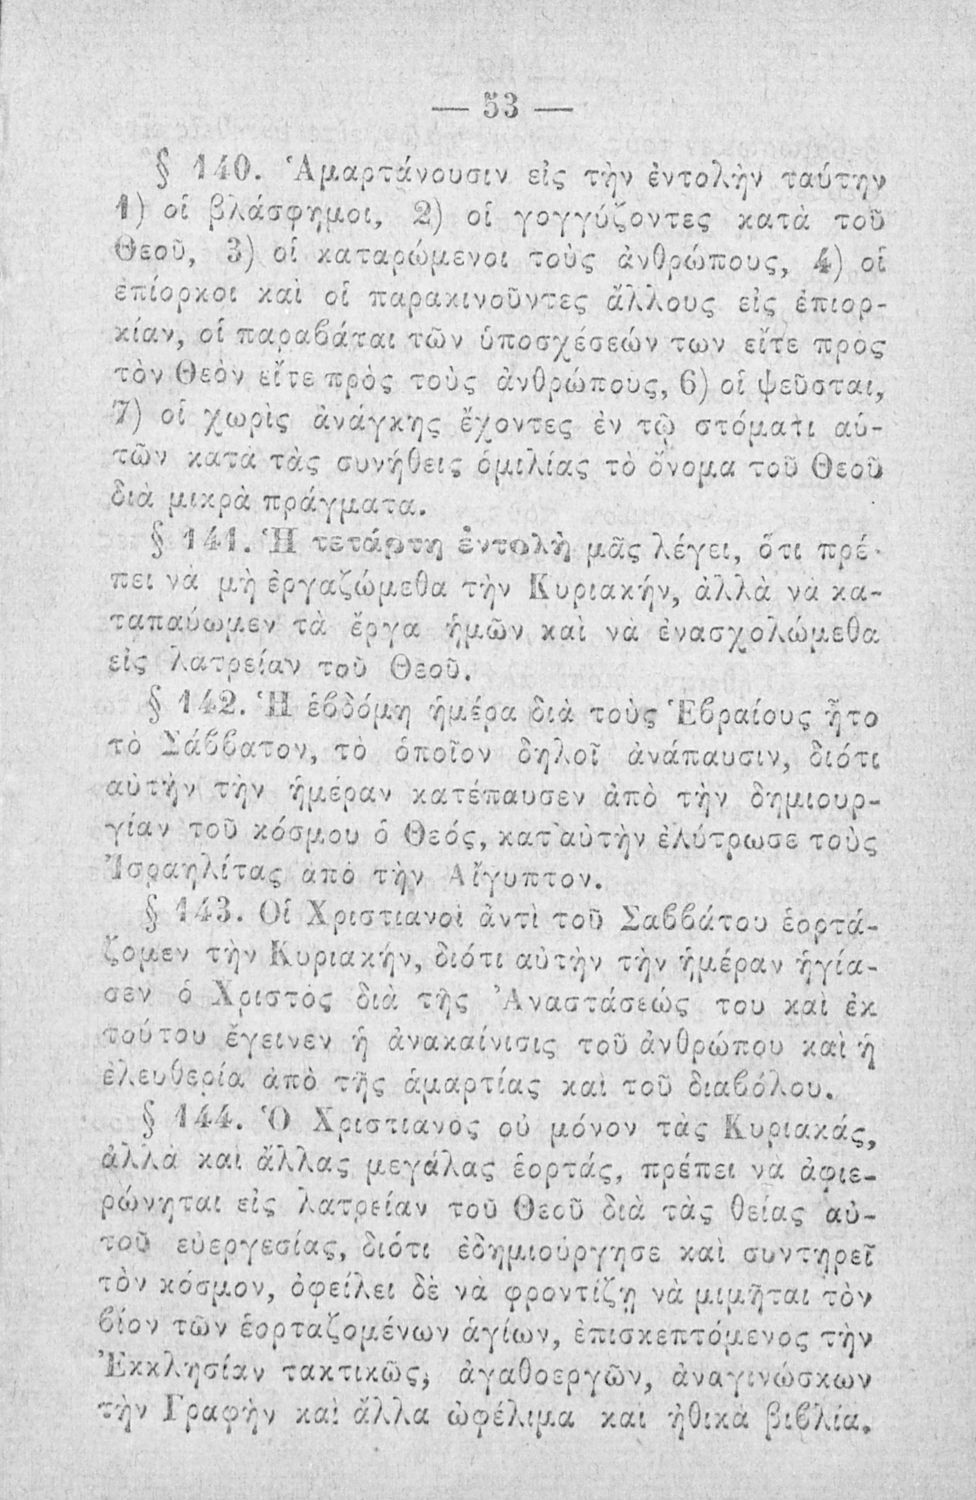 — 53 —
§ 140. Ἁμαρτάνουσιν εἰς τὴν ἐντολὴν ταύτην
1) οἱ βλάσφημοι, 2) οἱ γογγύζοντες κατὰ τοῦ
Θεοῦ, 3) οἱ καταρώμενοι τοὺς ἀνθρώπους, 4) οἱ
ἐπίορκοι καὶ οἱ παρακινοῦντες ἄλλους εἰς ἐπιορ-
κίαν, οἱ παραβάται τῶν ὑποσχέσεών των εἴτε πρὸς
τὸν Θεὸν εἴτε πρὸς τοὺς ἀνθρώπους, 6) οἱ ψεῦσται,
7) οἱ χωρὶς ἀνάγκης ἔχοντες ἐν τῷ στόματι αὐ-
τῶν κατὰ τὰς συνήθεις ὁμιλίας τὸ ὄνομα τοῦ Θεοῦ
διὰ μικρὰ πράγματα.
§ 141. Ἡ τετάρτη ἐντολὴ μᾶς λέγει, ὅτι πρέ-
πει νὰ μὴ ἐργαζώμεθα τὴν Κυριακήν, ἀλλὰ νὰ κα-
ταπαύωμεν τὰ ἔργα ἡμῶν καὶ νὰ ἐνασχολώμεθα
εἰς λατρείαν τοῦ Θεοῦ.
§ 142. Ἡ ἑβδόμη ἡμέρα διὰ τοὺς Ἑβραίους ἦτο
τὸ Σάββατον, τὸ ὁποῖον δηλοῖ ἀνάπαυσιν, διότι
αὐτὴν τὴν ἡμέραν κατέπαυσεν ἀπὸ τὴν δημιουρ-
γίαν τοῦ κόσμου ὁ Θεός, κατ' αὐτὴν ἐλύτρωσε τοὺς
Ἰσραηλίτας ἀπὸ τὴν Αἴγυπτον.
§ 143. Οἱ Χριστιανοὶ ἀντὶ τοῦ Σαββάτου ἑορτά-
ζομεν τὴν Κυριακήν, διότι αὐτὴν τὴν ἡμέραν ἡγία-
σεν ὁ Χριστὸς διὰ τῆς Ἀναστάσεώς του καὶ ἐκ
τούτου ἔγεινεν ἡ ἀνακαίνισις τοῦ ἀνθρώπου καὶ ἡ
ἐλευθερία ἀπὸ τῆς ἁμαρτίας καὶ τοῦ διαβόλου.
§ 144. Ὁ Χριστιανὸς οὐ μόνον τὰς Κυριακάς,
ἀλλὰ καὶ ἄλλας μεγάλας ἑορτάς, πρέπει νὰ ἀφιε-
ρώνηται εἰς λατρείαν τοῦ Θεοῦ διὰ τὰς θείας αὐ-
τοῦ εὐεργεσίας, διότι ἐδημιούργησε καὶ συντηρεῖ
τὸν κόσμον, ὀφείλει δὲ νὰ φροντίζῃ νὰ μιμῆται τὸν
βίον τῶν ἑορταζομένων ἁγίων, ἐπισκεπτόμενος τὴν
Ἐκκλησίαν τακτικῶς, ἀγαθοεργῶν, ἀναγινώσκων
τὴν Γραφὴν καὶ ἄλλα ὠφέλιμα καὶ ἠθικὰ βιβλία.